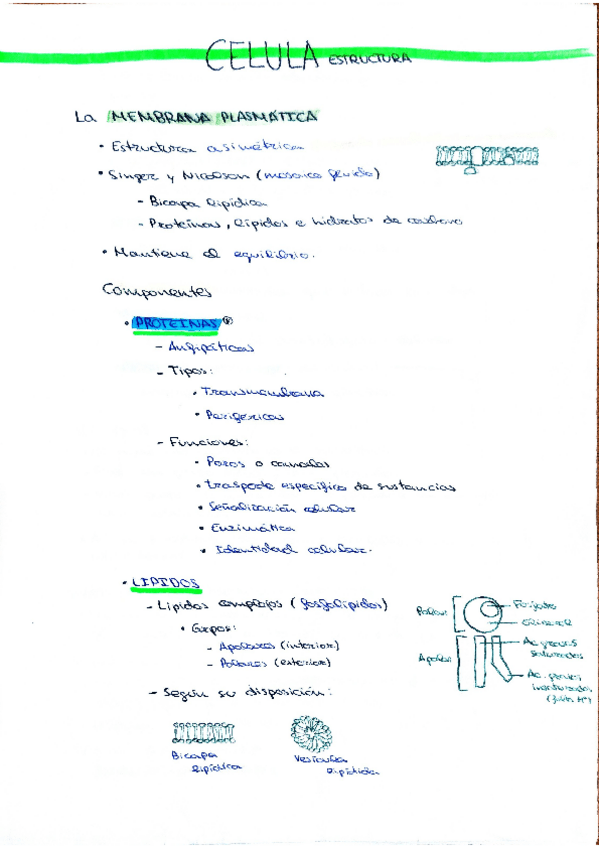 CELULA ESTRUCTURA
La MEMBRANA PLASMÁTICA
• Estructura asimétrica
• Singer y Nicolson (mosaico fluido)
- Bicapa lipídica
- Proteínas, lípidos e hidratos de carbono
• Mantiene el equilibrio.
Componentes
• PROTEINAS
- Anfipáticas
- Tipos:
• Transmembrana
• Periféricas
- Funciones:
• Poros o canales
• trasporte específico de sustancias
• Señalización celular
• Enzimática
• Identidad celular.
• LIPIDOS
- Lípidos complejos (fosfolípidos)
• Grupos:
- Apolares (interior)
- Polares (exterior)
Polar
Fosfato
Glicerol
Apolar
Ac. grasos
saturados
Ac. grasos
insaturados
- Según su disposición:
Bicapa
lipídica
Vesícula
lipídica